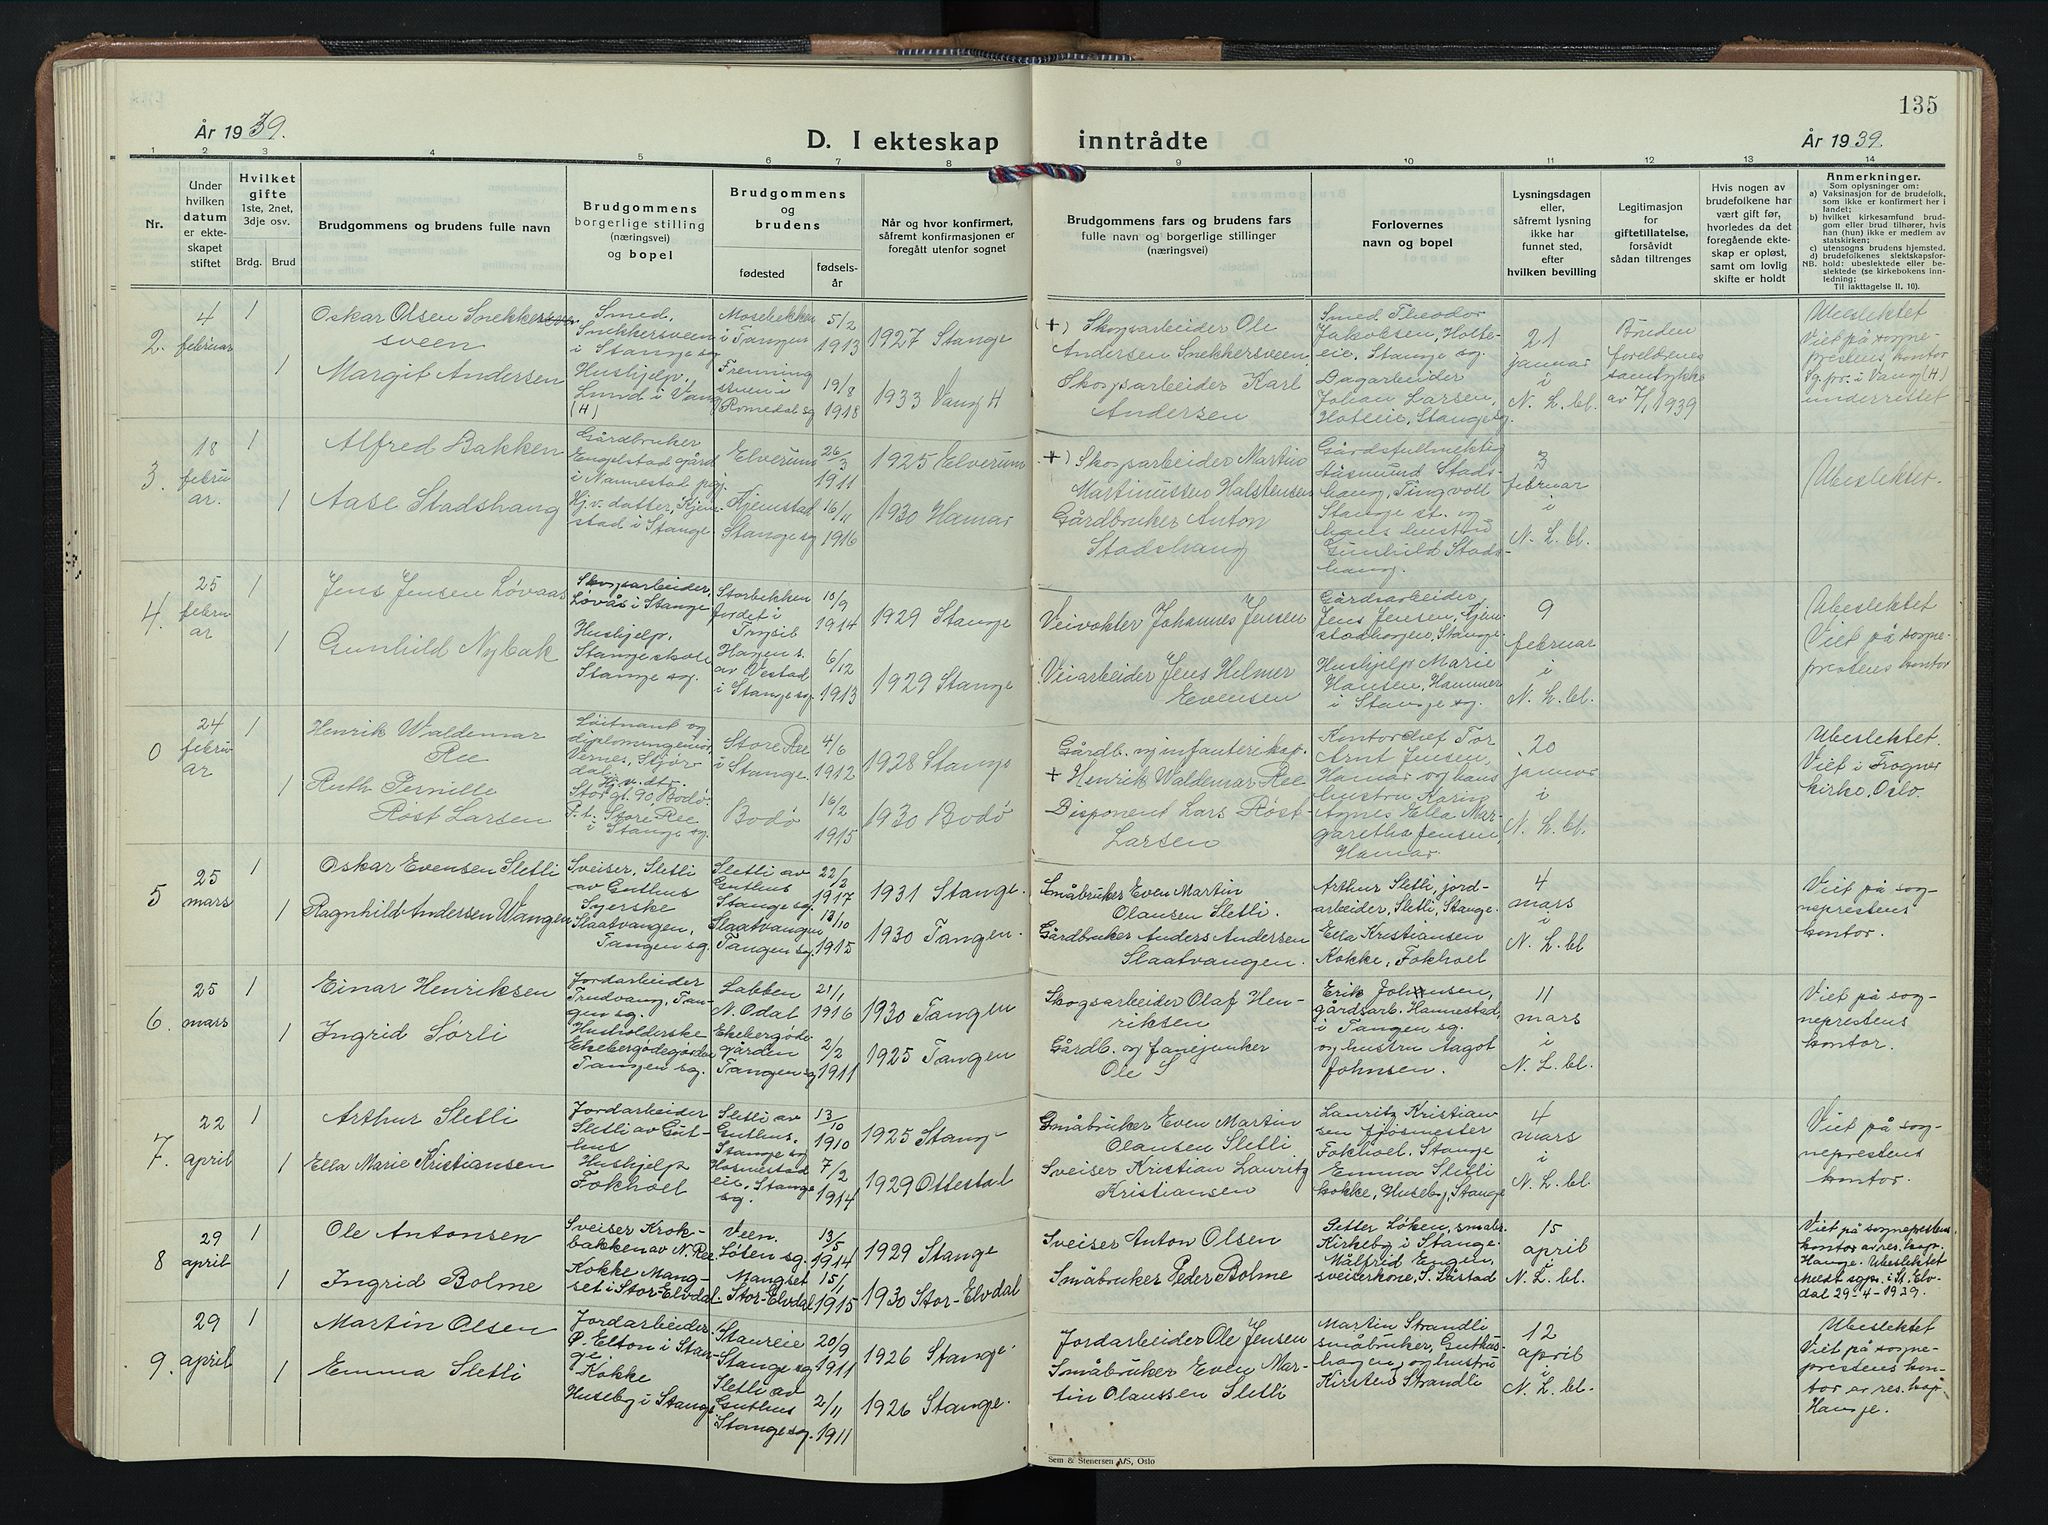 135
År 1939.
D. I ekteskap inntrådte
År 1939
1 2 3 4 5 6 7 8 9 10 11 12 13 14
Nr.
Under hvilken datum er ekteskapet stiftet
Hvilket gifte 1ste, 2net, 3dje osv.
Brdg. Brud
Brudgommens og brudens fulle navn
Brudgommens borgerlige stilling (næringsvei) og bopel
Brudgommens og brudens
fødested
fødselsår
Når og hvor konfirmert, såfremt konfirmasjonen er foregått utenfor sognet
Brudgommens fars og brudens fars fulle navn og borgerlige stillinger (næringsvei)
Forlovernes navn og bopel
Lysningsdagen eller, såfremt lysning ikke har funnet sted, efter hvilken bevilling
Legitimasjon for giftetillatelse, forsåvidt sådan tiltrenges
Hvis nogen av brudefolkene har vært gift før, hvorledes da det foregående ekteskap er opløst, samt om lovlig skifte er holdt
Anmerkninger.
Som oplysninger om:
a) Vaksinasjon for de brudefolk, som ikke er konfirmert her i landet;
b) hvilket kirkesamfund brudgom eller brud tilhører, hvis han (hun) ikke er medlem av statskirken;
c) utensogns brudens hjemsted.
d) brudefolkenes slektskapsforhold: ubeslektede eller beslektede (se kirkebokens innledning;
NB. Til iakttagelse II. 10).
2.
4 februar
1
Oskar Olsen Snekkersveen
Smed, Snekkersveen i Stange sg
Mosebekken i Tangen
5/2 1913
1927 Stange
(+) Skogsarbeider Ole Andersen Snekkersveen
Smed Theodor Jakobsen, Hotteie, Stange sg.
21 januar i N. L. bl.
Bruden foreldrenes samtykke av 7/1 1939
Ubeslektet
Viet på sogneprestens kontor
Sg.pr. i Vang (H) underrettet
1
Margit Andersen
Hushjelp, Lund i Vang (H)
Frenningsveen i Romedal sg
19/8 1918
1933 Vang H
Skogsarbeider Karl Andersen
Dagarbeider Johan Larsen, Hotteie, Stange sg.
3.
18 februar.
1
Alfred Bakken
Gårdbruker Engelstad gård i Nannestad pgj.
Elverum
26/3 1911
1925 Elverum
+) Skogsarbeider Martin Martinussen Halstensen
Gårdsfullmektig Aasmund Stadshaug, Tingvoll Stange st. og hans hustru Gunhild Stadshaug.
3 februar i N. L. bl.
Ubeslektet.
1
Aase Stadshaug
Hj.v. datter, Kjemstad i Stange
Kjemstad Stange sg
16/11 1916
1930 Hamar
Gårdbruker Anton Stadshaug
4.
25 februar
1
Jens Jensen Løvaas
Skogsarbeider, Løvås i Stange
Storbekkenfordet i Trysil
10/9 1914
1929 Stange
Veivokter Johannes Jensen
Gårdsarbeider Jens Jensen, Kjemstadhagen, Stange
9 februar i N. L. bl.
Ubeslektet
Viet på sogneprestens kontor
1
Gunhild Nybak
Hushjelp, Stange skole Stange sg.
Hagen s. av Vestad i Stange sg.
6/12 1913
1929 Stange
Veiarbeider Jens Helmer Evensen
Hushjelp Marie Hansen, Hammer i Stange sg.
0
24 februar
1
Henrik Waldemar Ree
Løitnant og diplomingeniør, Vernes, Stjørdal
Store Ree i Stange.
4/6 1912
1928 Stange
Gårdb. og infanterikap. + Henrik Waldemar Ree
Kontorchef Tor Arnt Jensen, Hamar og hans hustru Karin Agnes Ella Margaretha Jensen, Hamar.
20 januar i N. L. bl.
Ubeslektet.
Viet i Frogner kirke, Oslo.
1
Ruth Pernille Røst Larsen
Hj.v. dtr. Storgt. 90 Bodø. P.t. Store Ree i Stange sg.
Bodø
16/2 1915
1930 Bodø
Disponent Lars Røst Larsen
5
25 mars
1
Oskar Evensen Sletli
Sveiser, Sletli av Guthus
Sletli av Guthus Stange sg.
22/2 1917
1931 Stange.
Småbruker Even Martin Olausen Sletli.
Arthur Sletli, jordarbeider, Sletli, Stange.
4 mars i N. L. bl
Viet på sogneprestens kontor.
1
Ragnhild Andersen Wangen
Syerske Slaatvangen, Tangen sg.
Slaatvangen Tangen sg.
13/10 1915
1930 Tangen.
Gårdbruker Anders Andersen Slaatvangen.
Ella Kristiansen Kokke, Fokhoel
6.
25 mars
1
Einar Henriksen
Jordarbeider Trudvang, Tangen sg.
Labben N. Odal
21/1 1916
1930 Tangen
Skogsarbeider Olaf Henriksen
Erik Johnsen, gårdsarb. Hannestad, i Tangen sg. og hustru Aagot Johnsen.
11 mars i N. L. bl.
Viet på sogneprestens kontor.
1
Ingrid Sørli
Husholderske Ekebergødegården Tangen sg.
Ekebergødegården Tangen sg
2/2 1911
1925 Tangen
Gårdb. og fanejunker Ole S
7.
22 april
1
Arthur Sletli
Jordarbeider Sletli av Guthus
Sletli av Guthus. Stange sg
13/10 1910
1925 Stange
Småbruker Even Martin Olausen Sletli
Lauritz Kristiansen fjøsmester Fokhoel. Stange
4 mars i N. L. bl.
Viet på sogneprestens kontor.
1
Ella Marie Kristiansen
Hushjelp Fokhoel
Hosmestadeie, Stange sg.
7/2 1914
1929 Ottestad
Sveiser Kristian Lauritz Kristiansen
Emma Sletli kokke, Huseby, Stange
8
29 april
1
Ole Antonsen
Sveiser Krokbakken av N. Ree
Veen. Løten sg.
13/5 1914
1929 Stange
Sveiser Anton Olsen
Petter Løken, småbr. Kirkeby i Stange.
15 april N. L. bl.
Viet på sogneprestens kontor av res. kap. Hansje. Ubeslektet
Meldt sgpr. i St. Elvdal 29-4-1939.
1
Ingrid Bolme
Kokke Mangset i Stor-Elvdal.
Mangset Stor-Elvdal
15/1 1915
1930 Stor-Elvdal
Småbruker Peder Bolme
Målfrid Engen, sveiserkone, S. Såstad
9.
29 april
1
Martin Olsen
Jordarbeider Ø. Elton i Stange,
Staureie Stange sg
20/9 1911
1926 Stange.
Jordarbeider Ole Jensen
Martin Strandli småbruker, Guthushagen, og hustru Kirsten Strandli
12 april i N. L. bl.
Ubeslektet
Viet på sogneprestens kontor av res. kap Hansje.
1
Emma Sletli
Kokke Huseby i Stange
Sletli av Guthus Stange sg.
2/11 1911
1926 Stange.
Småbruker Even Martin Olaussen Sletli
Sem & Stenersen A/S, Oslo